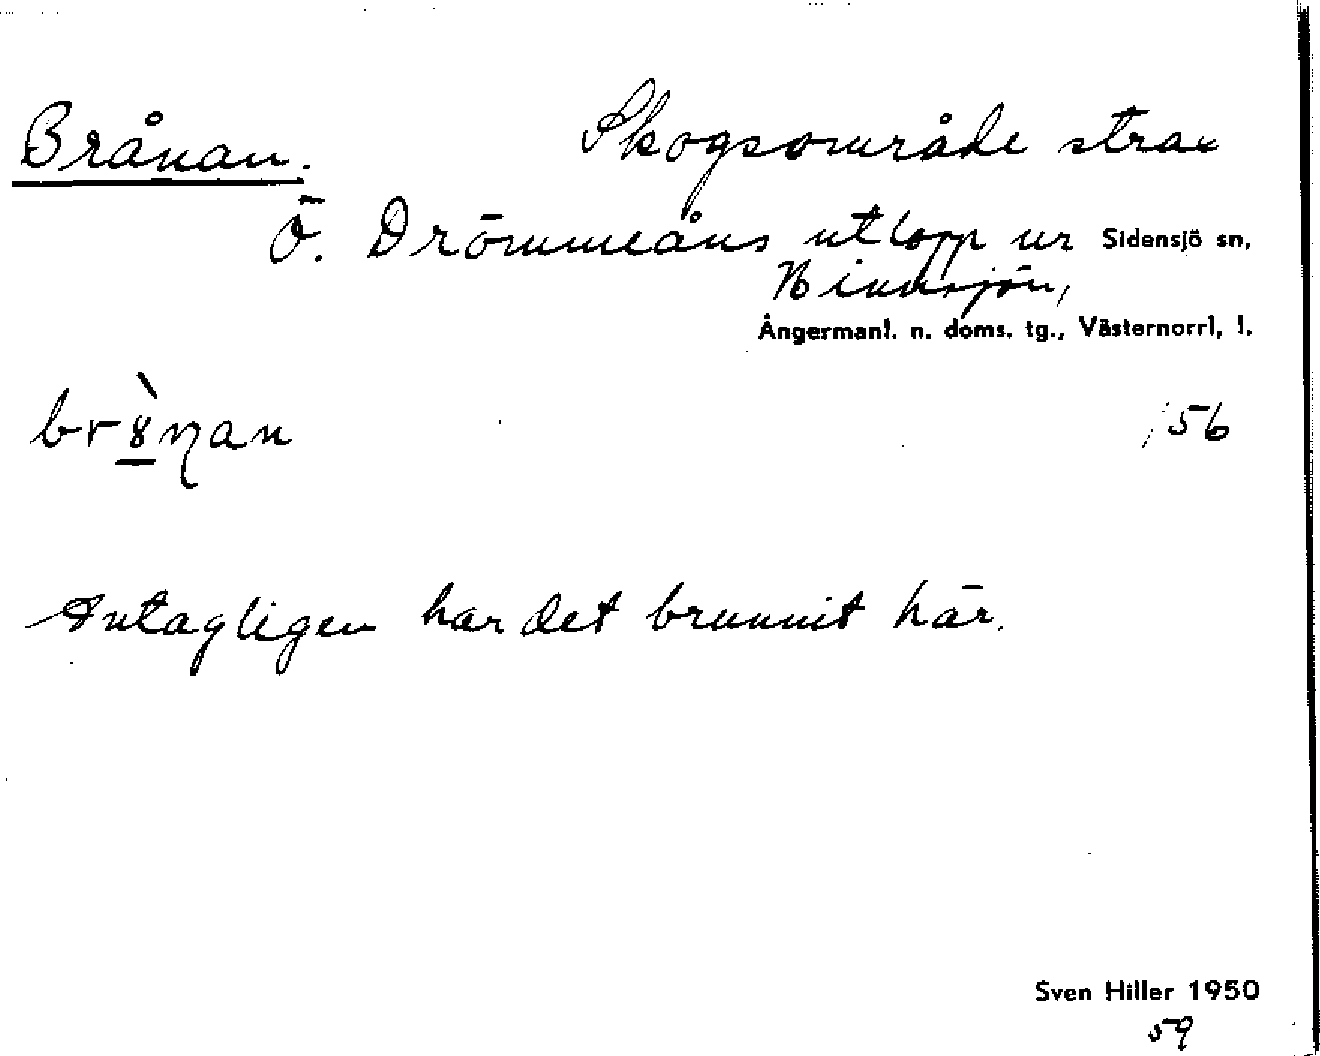 Brånan. Skogsområde strax
Ö. Drömmeåns utlopp ur Sidensjö sn,
Ångermanl. n. doms. tg., Västernorrl, l.
56
Antagligen har det brunnit här.
Sven Hiller 1950
59